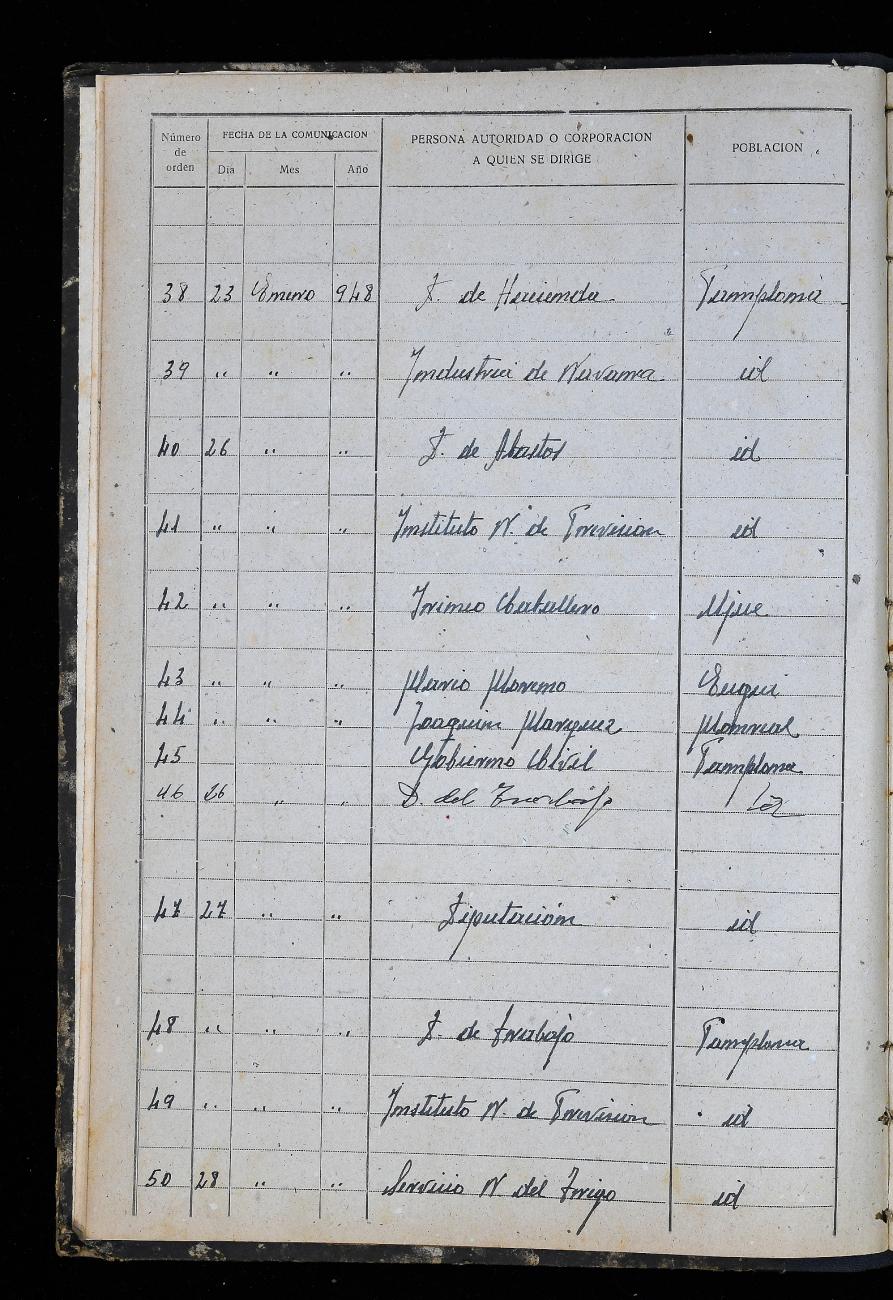 Número de orden | FECHA DE LA COMUNICACION | PERSONA AUTORIDAD O CORPORACION A QUIEN SE DIRIGE | POBLACION
Día | Mes | Año
38 23 Enero 948 D. de Hacienda Pamplona
39 " " " Industria de Navarra id
40 26 " " D. de Abastos id
41 " " " Instituto N. de Prevision id
42 " " " Irineo Caballero Ujue
43 " " " Mario Moreno Eugui
44 " " " Joaquin Marquez Monreal
45 Gobierno Civil Pamplona
46 26 " " D. del Trabajo id
47 27 " " Diputación id
48 " " " D. de trabajo Pamplona
49 " " " Instituto N. de Prevision id
50 28 " " Servicio N del Trigo id